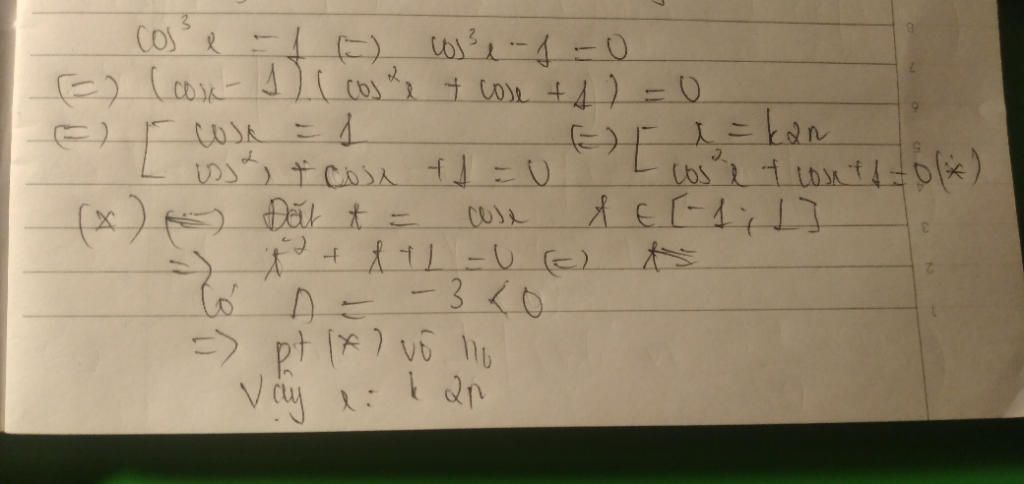 cos³x = 1 (=) cos³x - 1 = 0
(=) (cosx - 1).(cos²x + cosx + 1) = 0
(=) [ cosx = 1 (=) [ x = k2π
cos²x + cosx + 1 = 0 cos²x + cosx + 1 = 0 (*)
(*) Đặt t = cosx t ∈ [-1; 1]
=> t² + t + 1 = 0 (=)
Có Δ = -3 < 0
=> pt (*) vô no
Vậy x = k2π
8
7
6
5
3
2
1